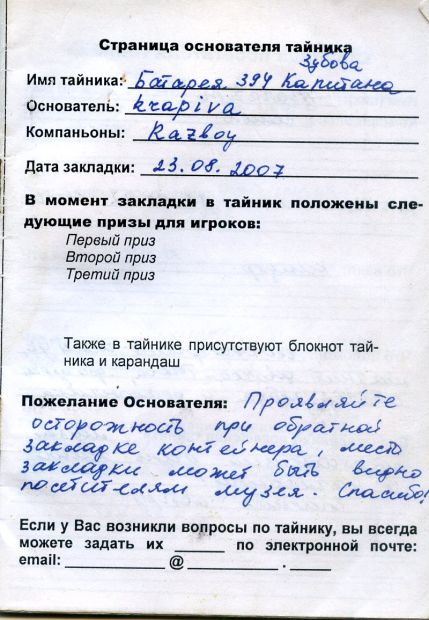 Страница основателя тайника
Зубова
Имя тайника: Батарея 394 Капитана
Основатель: krapiva
Компаньоны: Razboy
Дата закладки: 23.08.2007
В момент закладки в тайник положены сле-
дующие призы для игроков:
Первый приз
Второй приз
Третий приз
Также в тайнике присутствуют блокнот тай-
ника и карандаш
Пожелание Основателя: Проявляйте
осторожность при обратной
закладке контейнера, место
закладки может быть видно
посетителям музея. Спасибо!
Если у Вас возникли вопросы по тайнику, вы всегда
можете задать их ______ по электронной почте:
email: ____________ @ ____________ . _____